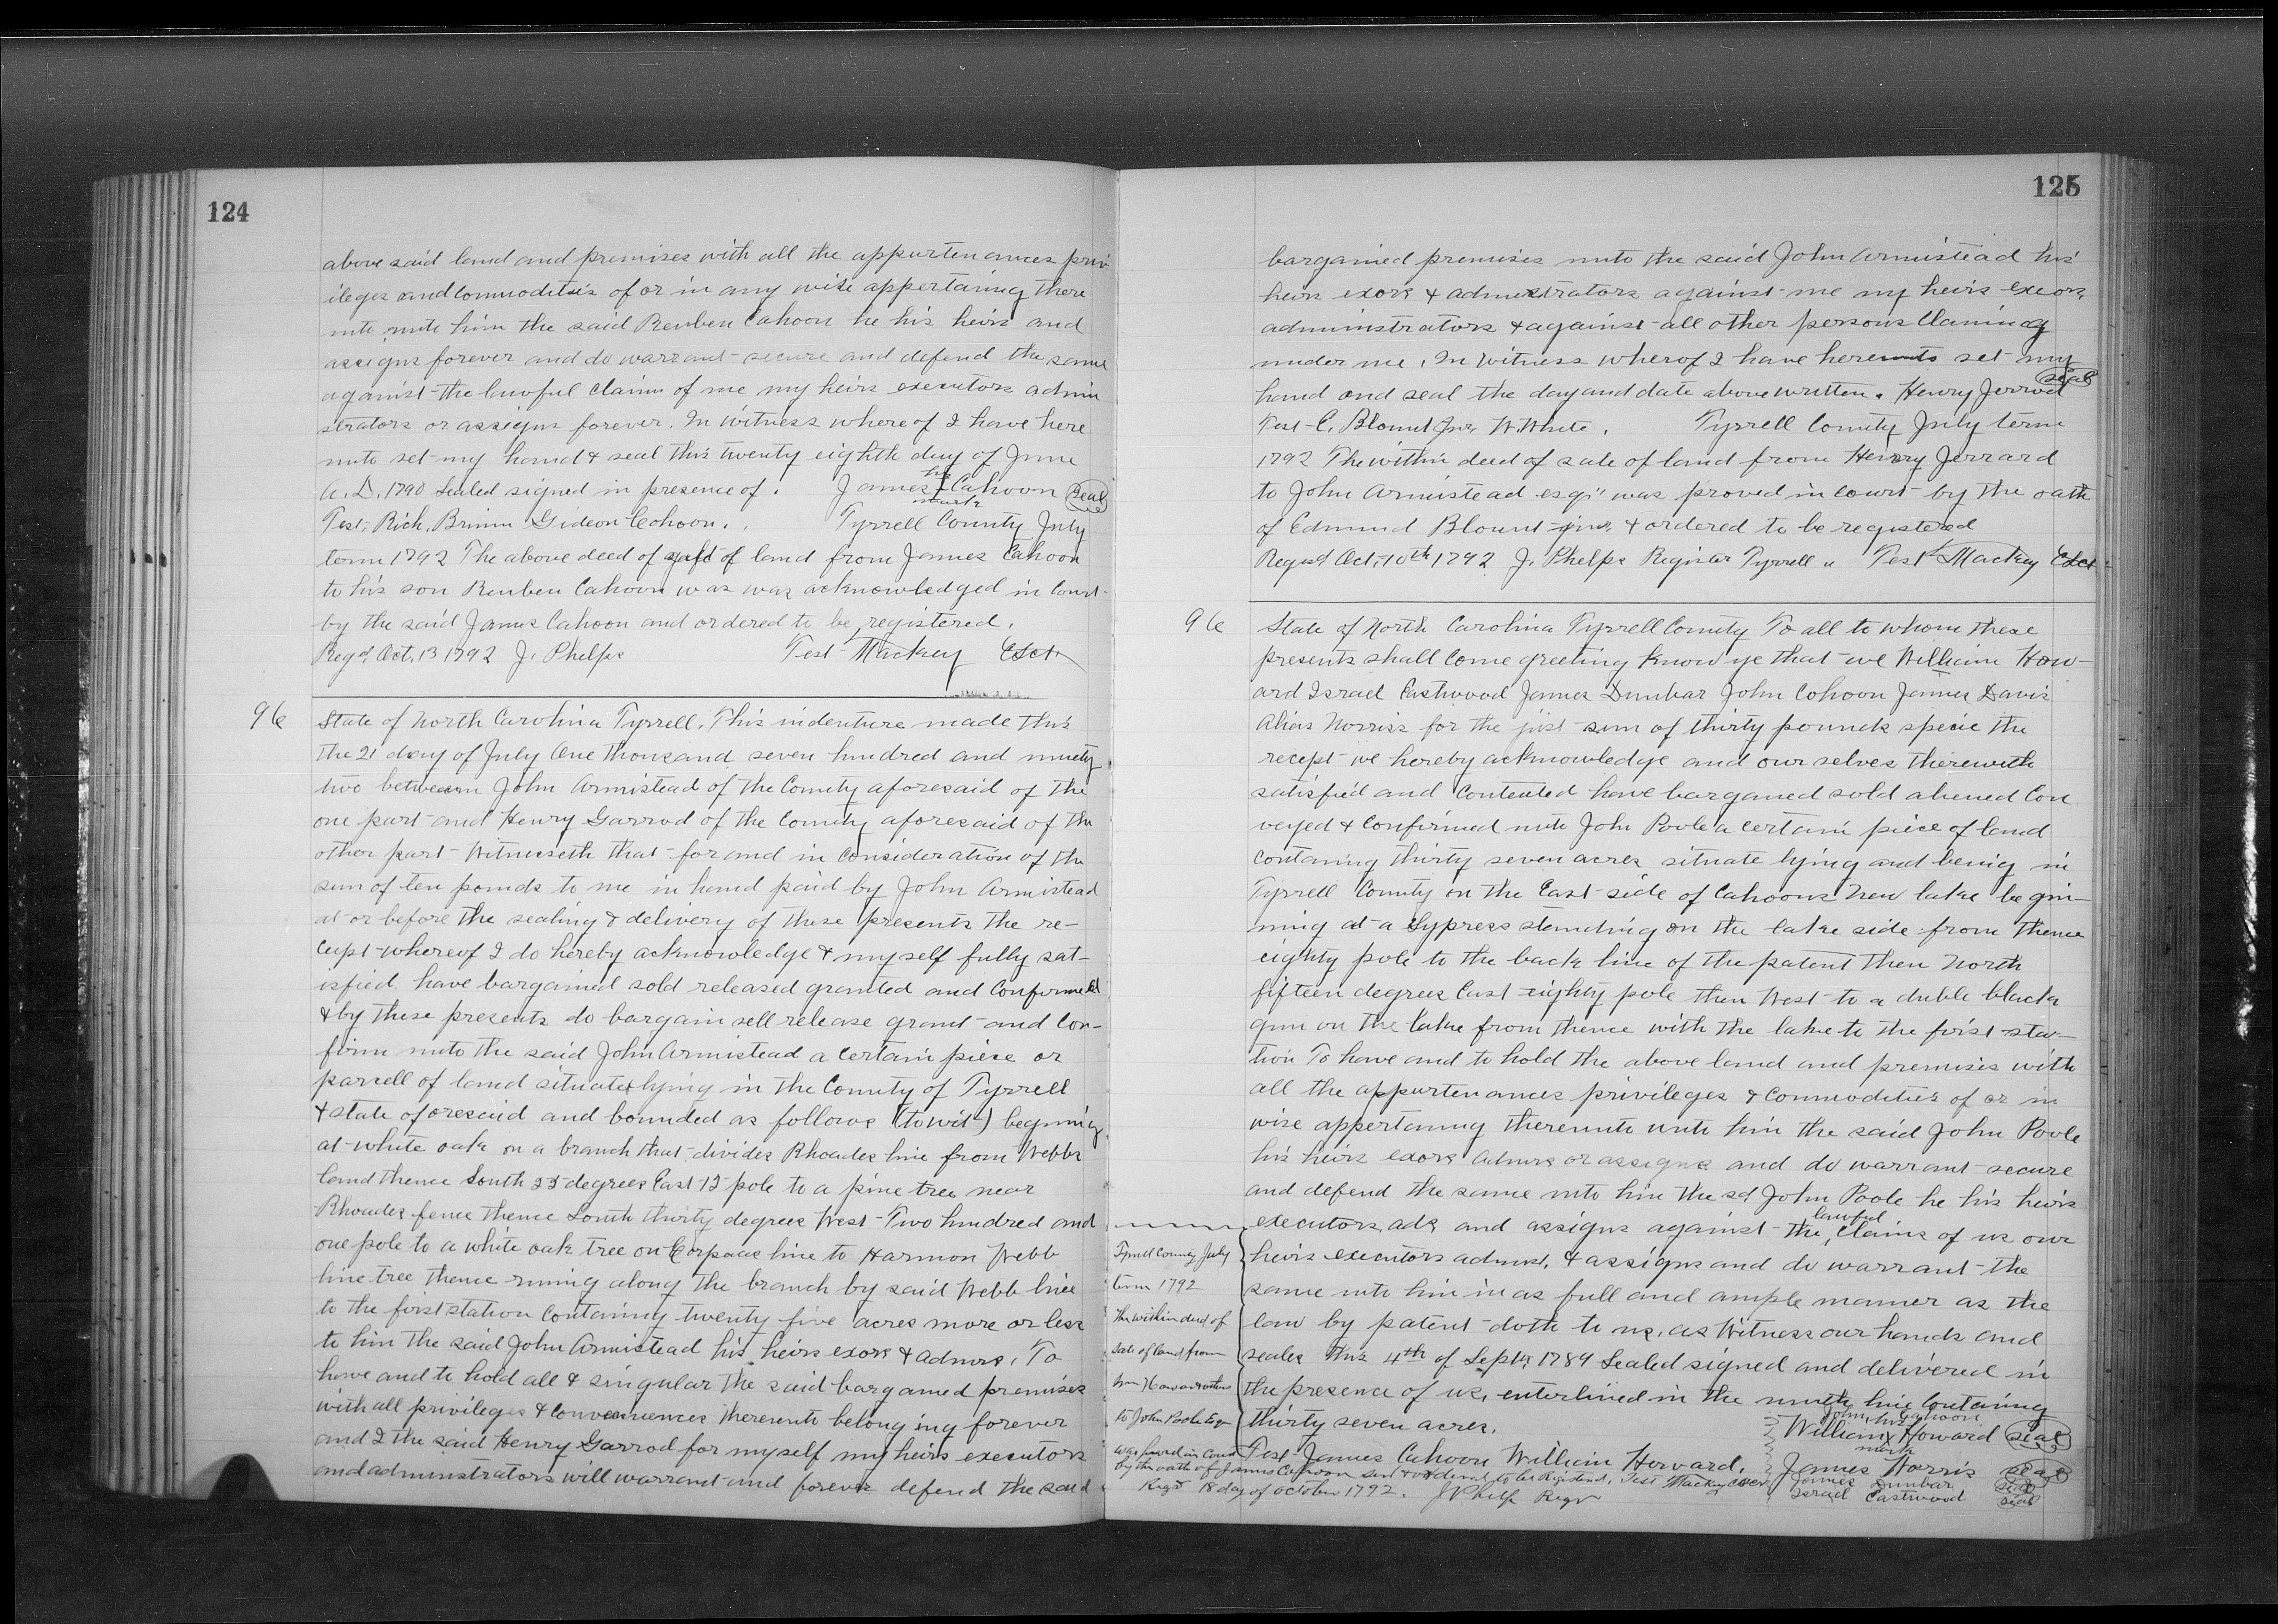 124
above said land and premises with all the appurtenances priv
ileges and commodities of or in any wise appertaining there
unto unto him the said Reuben Cahoon he his heirs and
assigns forever and do warrant secure and defend the same
against the lawful claims of me my heirs executors admin
strators or assigns forever. In witness where of I have here
unto set my hand & seal this twenty eighth day of June
A. D. 1790 Sealed signed in presence of. James his mark Cahoon Seal
Test, Rich. Brinn Gideon Cohoon. Tyrrell County July
term 1792 The above deed of gift of land from James Cahoon
to his son Reuben Cahoon was was acknowledged in Court
by the said James Cahoon and ordered to be registered.
Regd Oct. 13 1792 J. Phelps Test Mackey
96
State of North Carolina Tyrrell. This indenture made this
the 21 day of July One thousand seven hundred and ninety
two between John Armistead of the County aforesaid of the
one part and Henry Garrod of the County aforesaid of the
other part Witnesseth that for and in consideration of the
sum of ten pounds to me in hand paid by John Armistead
at or before the sealing & delivery of these presents the re-
ceipt whereof I do hereby acknowledge & myself fully sat-
isfied have bargained sold released granted and confirmed
& by these presents do bargain sell release grant and con-
firm unto the said John Armistead a certain piece or
parcell of land situate & lying in the County of Tyrrell
& state aforesaid and bounded as follows (to wit) begining
at white oak on a branch that divides Rhoades line from Webbs
land thence South 25 degrees East 12 pole to a pine tree near
Rhoades fence thence South thirty degrees West Two hundred and
one pole to a white oak tree on line to Harmon Webb
line tree thence runing along the branch by said Webb line
to the first station Containing twenty five acres more or less
to him the said John Armistead his heirs exors & admrs. To
have and to hold all & singular the said bargained premises
with all privileges & conveniences thereunto belonging forever
and I the said Henry Garrod for myself my heirs executors
and administrators will warrant and forever defend the said
125
bargained premises unto the said John Armistead his
heirs exors & admistrators against me my heirs exors
administrators & against all other persons Claiming
under me. In witness wherof I have hereunto set my
hand and seal the day and date above written. Henry Jerrod seal
Test C. Blount Jnr. W. White. Tyrrell County July term
1792 The within deed of sale of land from Henry Jerrard
to John Armistead esqr was proved in court by the oath
of Edmund Blount jnr. & ordered to be registered
Regisd Oct. 10th 1792 J. Phelps Register Tyrrell Test Mackey
96
State of North Carolina Tyrrell County To all to whom these
presents shall come greeting know ye that we William How-
ard Israel Eastwood James Dunbar John Cohoon James Davis
Alias Norriss for the just sum of thirty pounds specie the
recept we hereby acknowledge and our selves therewith
satisfied and contented have barganed sold aliened Con
veyed & Confirmed unto John Poole a certain piece of land
containing thirty seven acres situate lying and being in
Tyrrell County on the East side of Cahoons New lake begin-
ning at a Sypress standing on the lake side from thence
eighty pole to the back line of the patent then North
fifteen degrees East eighty pole then West to a duble black
gum on the lake from thence with the lake to the first sta-
tion To have and to hold the above land and premises with
all the appurtenances privileges & commodities of or in
wise appertaning thereunto unto him the said John Poole
his heirs exors admrs or assigns and do warrant secure
and defend the same unto him the sd. John Poole he his heirs
executors, ads and assigns against the lawful claims of us our
heirs executors admrst. & assigns and do warrant the
same unto him in as full and ample manner as the
law by patent doth to us, as Witness our hands and
seals this 4th of Septr. 1789 Sealed signed and delivered in
the presence of us, enterlined in the ninth line Containing
thirty seven acres.
John his Cahoon
William Howard seal
mark
Test James Cahoon William Howard. James Norris seal
James Dunbar seal
Israel Eastwood seal
Tyrrell County July
term 1792
The within deed of
sale of land from
Wm Howard others
to John Poole Esqr
was proved in Court
by the oath of James Cahoon senr & ordered to be Registered. Test Mackey
Regd 18 day of October 1792. J Phelps Regr